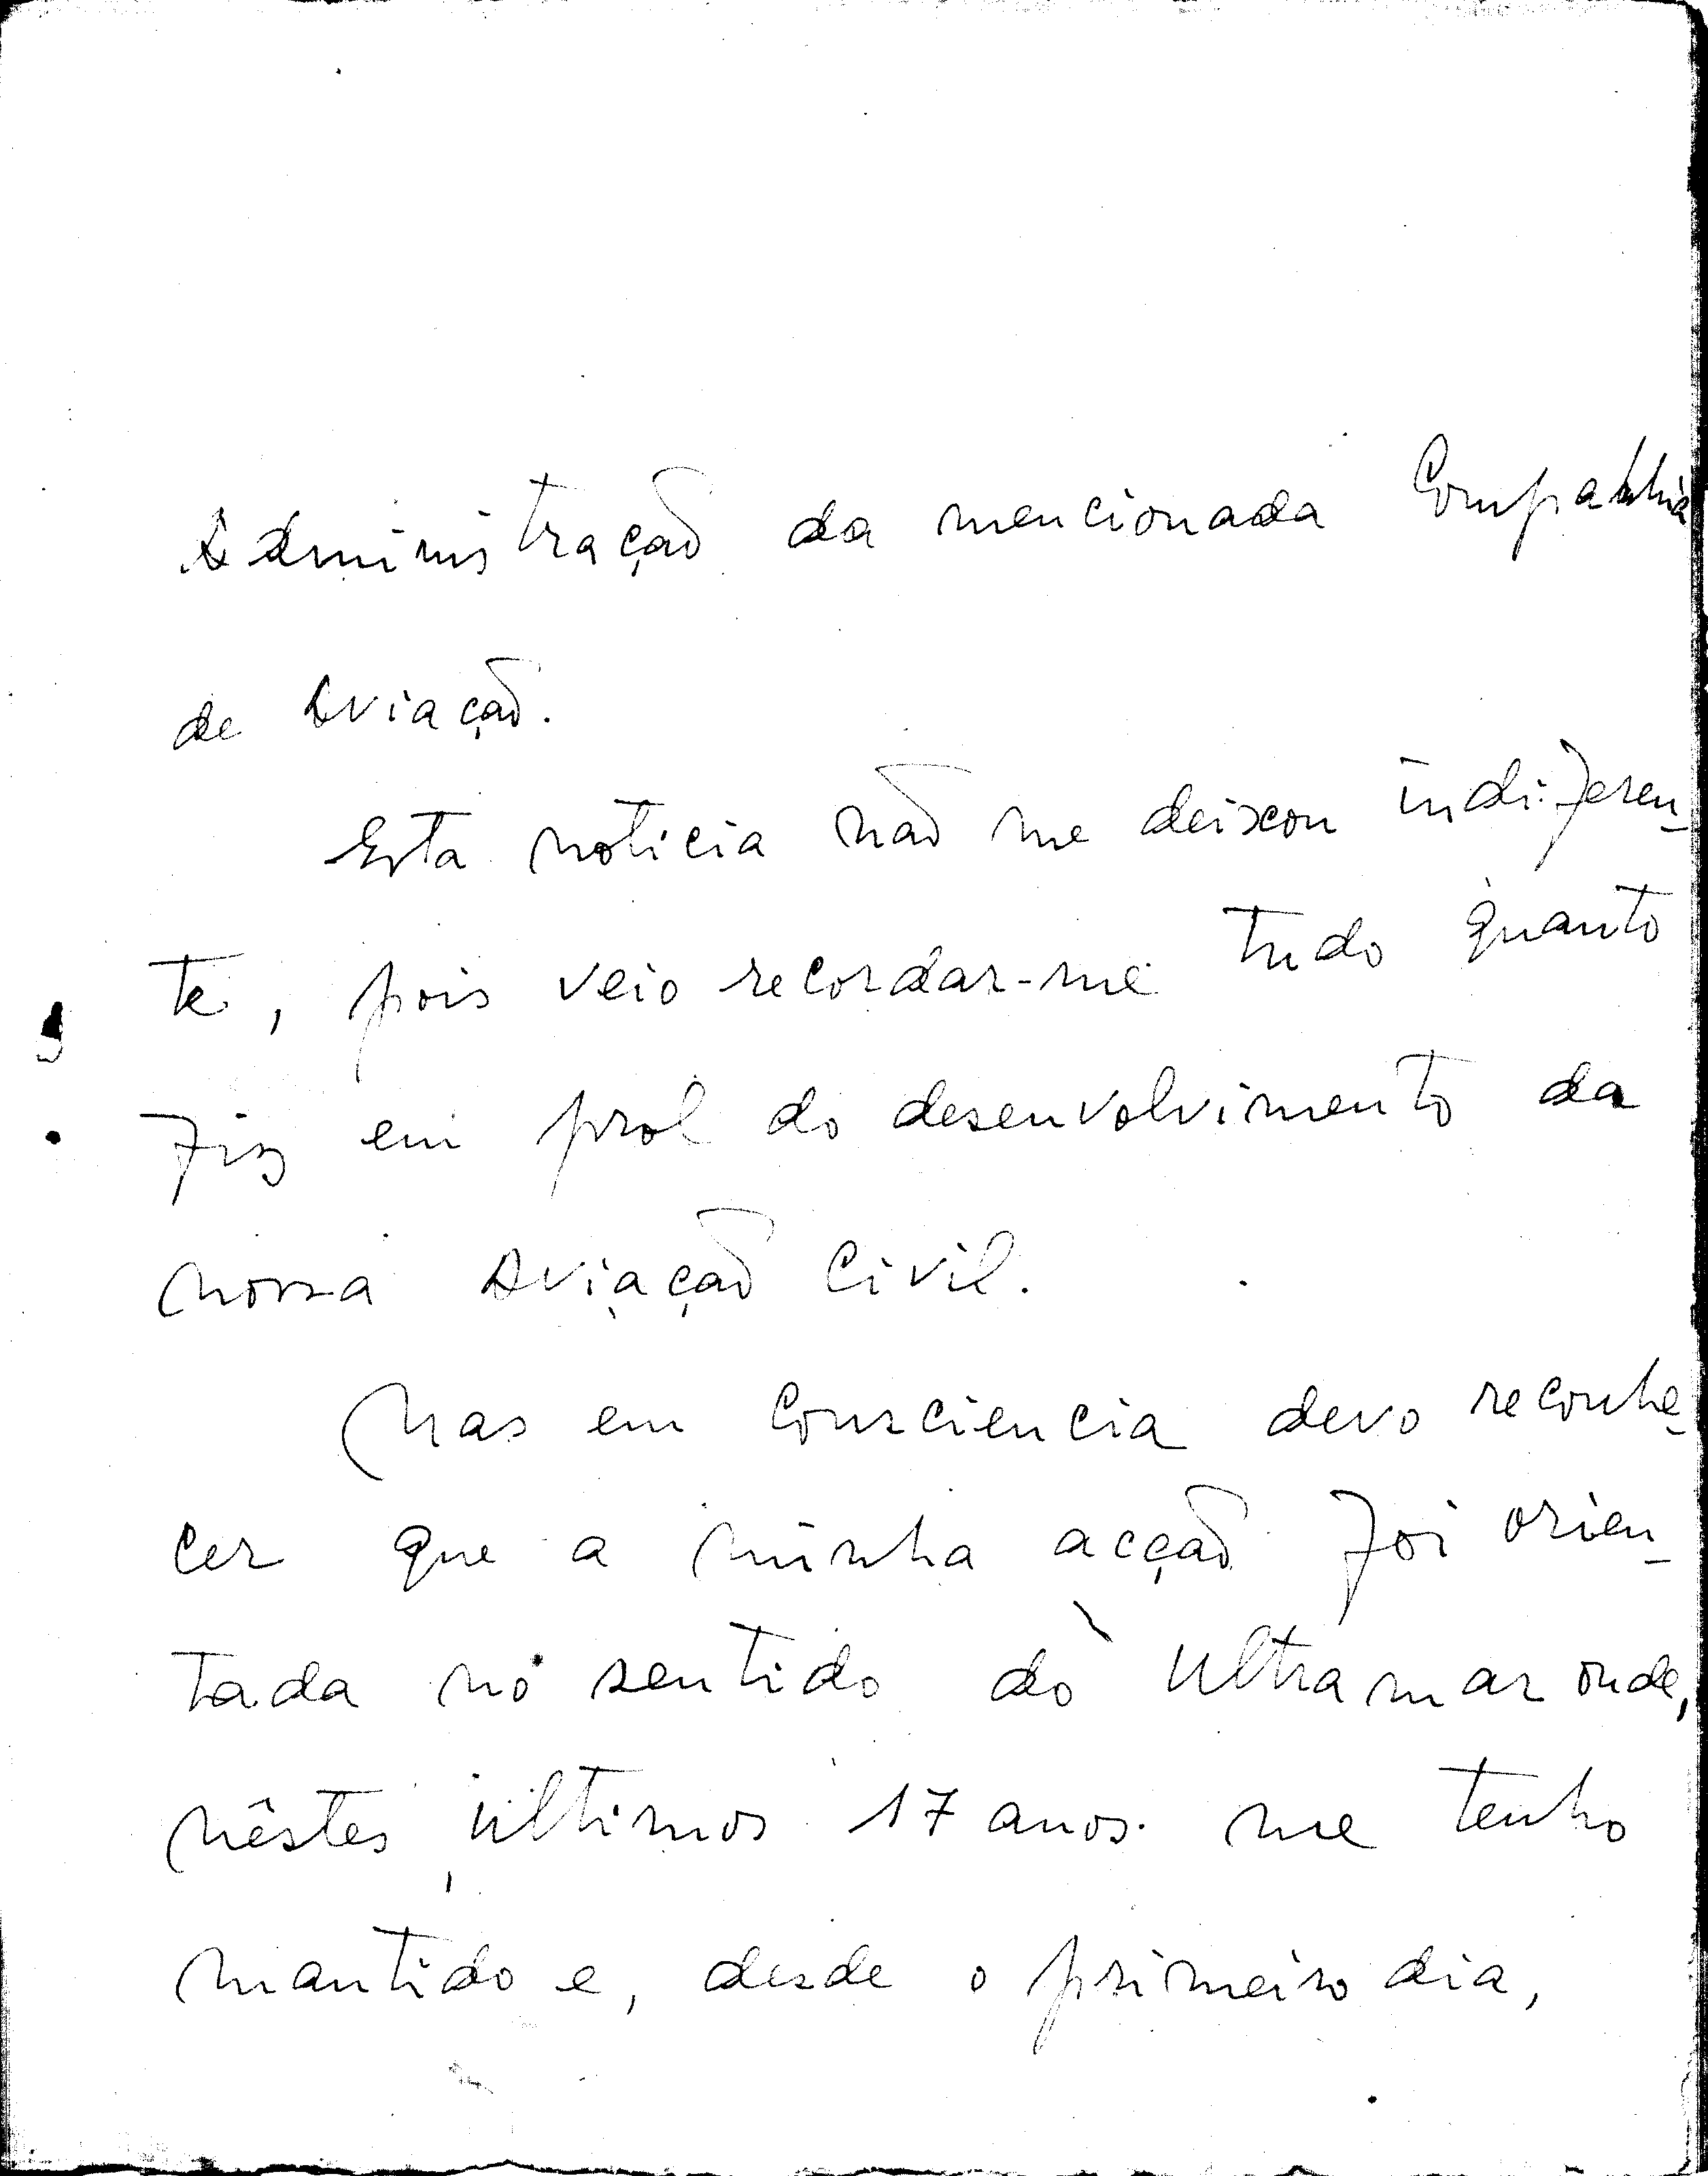 Administração da mencionada Companhia
de Aviação.
Esta noticia não me deixou indiferen-
te, pois veio recordar-me tudo quanto
fiz em prol do desenvolvimento da
nossa Aviação Civil.
Mas em consciencia devo reconhe-
cer que a minha acção foi orien-
tada no sentido do Ultramar onde,
nêstes ultimos 17 anos me tenho
mantido e, desde o primeiro dia,